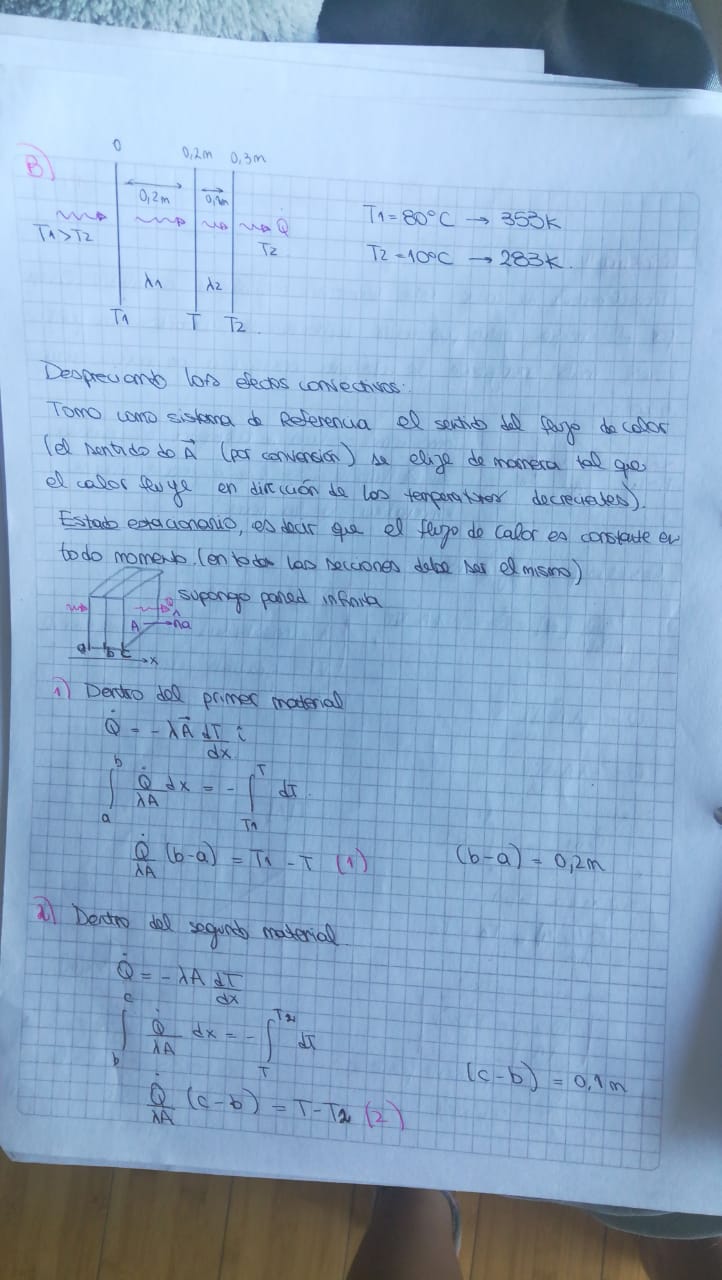 B)
0 0,2m 0,3m
0,2m 0,1m
T1>T2
Q̇
T2
λ1 λ2
T1 T T2
T1 = 80°C → 353K
T2 = 10°C → 283K.
Despreciando los efectos convectivos:
Tomo como sistema de Referencia el sentido del flujo de calor
(el sentido de A⃗ (por convensión) se elije de manera tal que
el calor fluye en dirección de las temperaturas decrecientes).
Estado estacionario, es decir que el flujo de calor es constante en
todo momento. (en todas las secciones debe ser el mismo)
supongo pared infinita
A
a b c
x
1) Dentro del primer material
Q̇ = -λA⃗ dT/dx î
∫_a^b Q̇/λA dx = -∫_T1^T dT.
Q̇/λA (b-a) = T1 - T (1) (b-a) = 0,2m
2) Dentro del segundo material
Q̇ = -λA dT/dx
∫_b^c Q̇/λA dx = -∫_T^T2 dT
Q̇/λA (c-b) = T-T2 (2) (c-b) = 0,1m